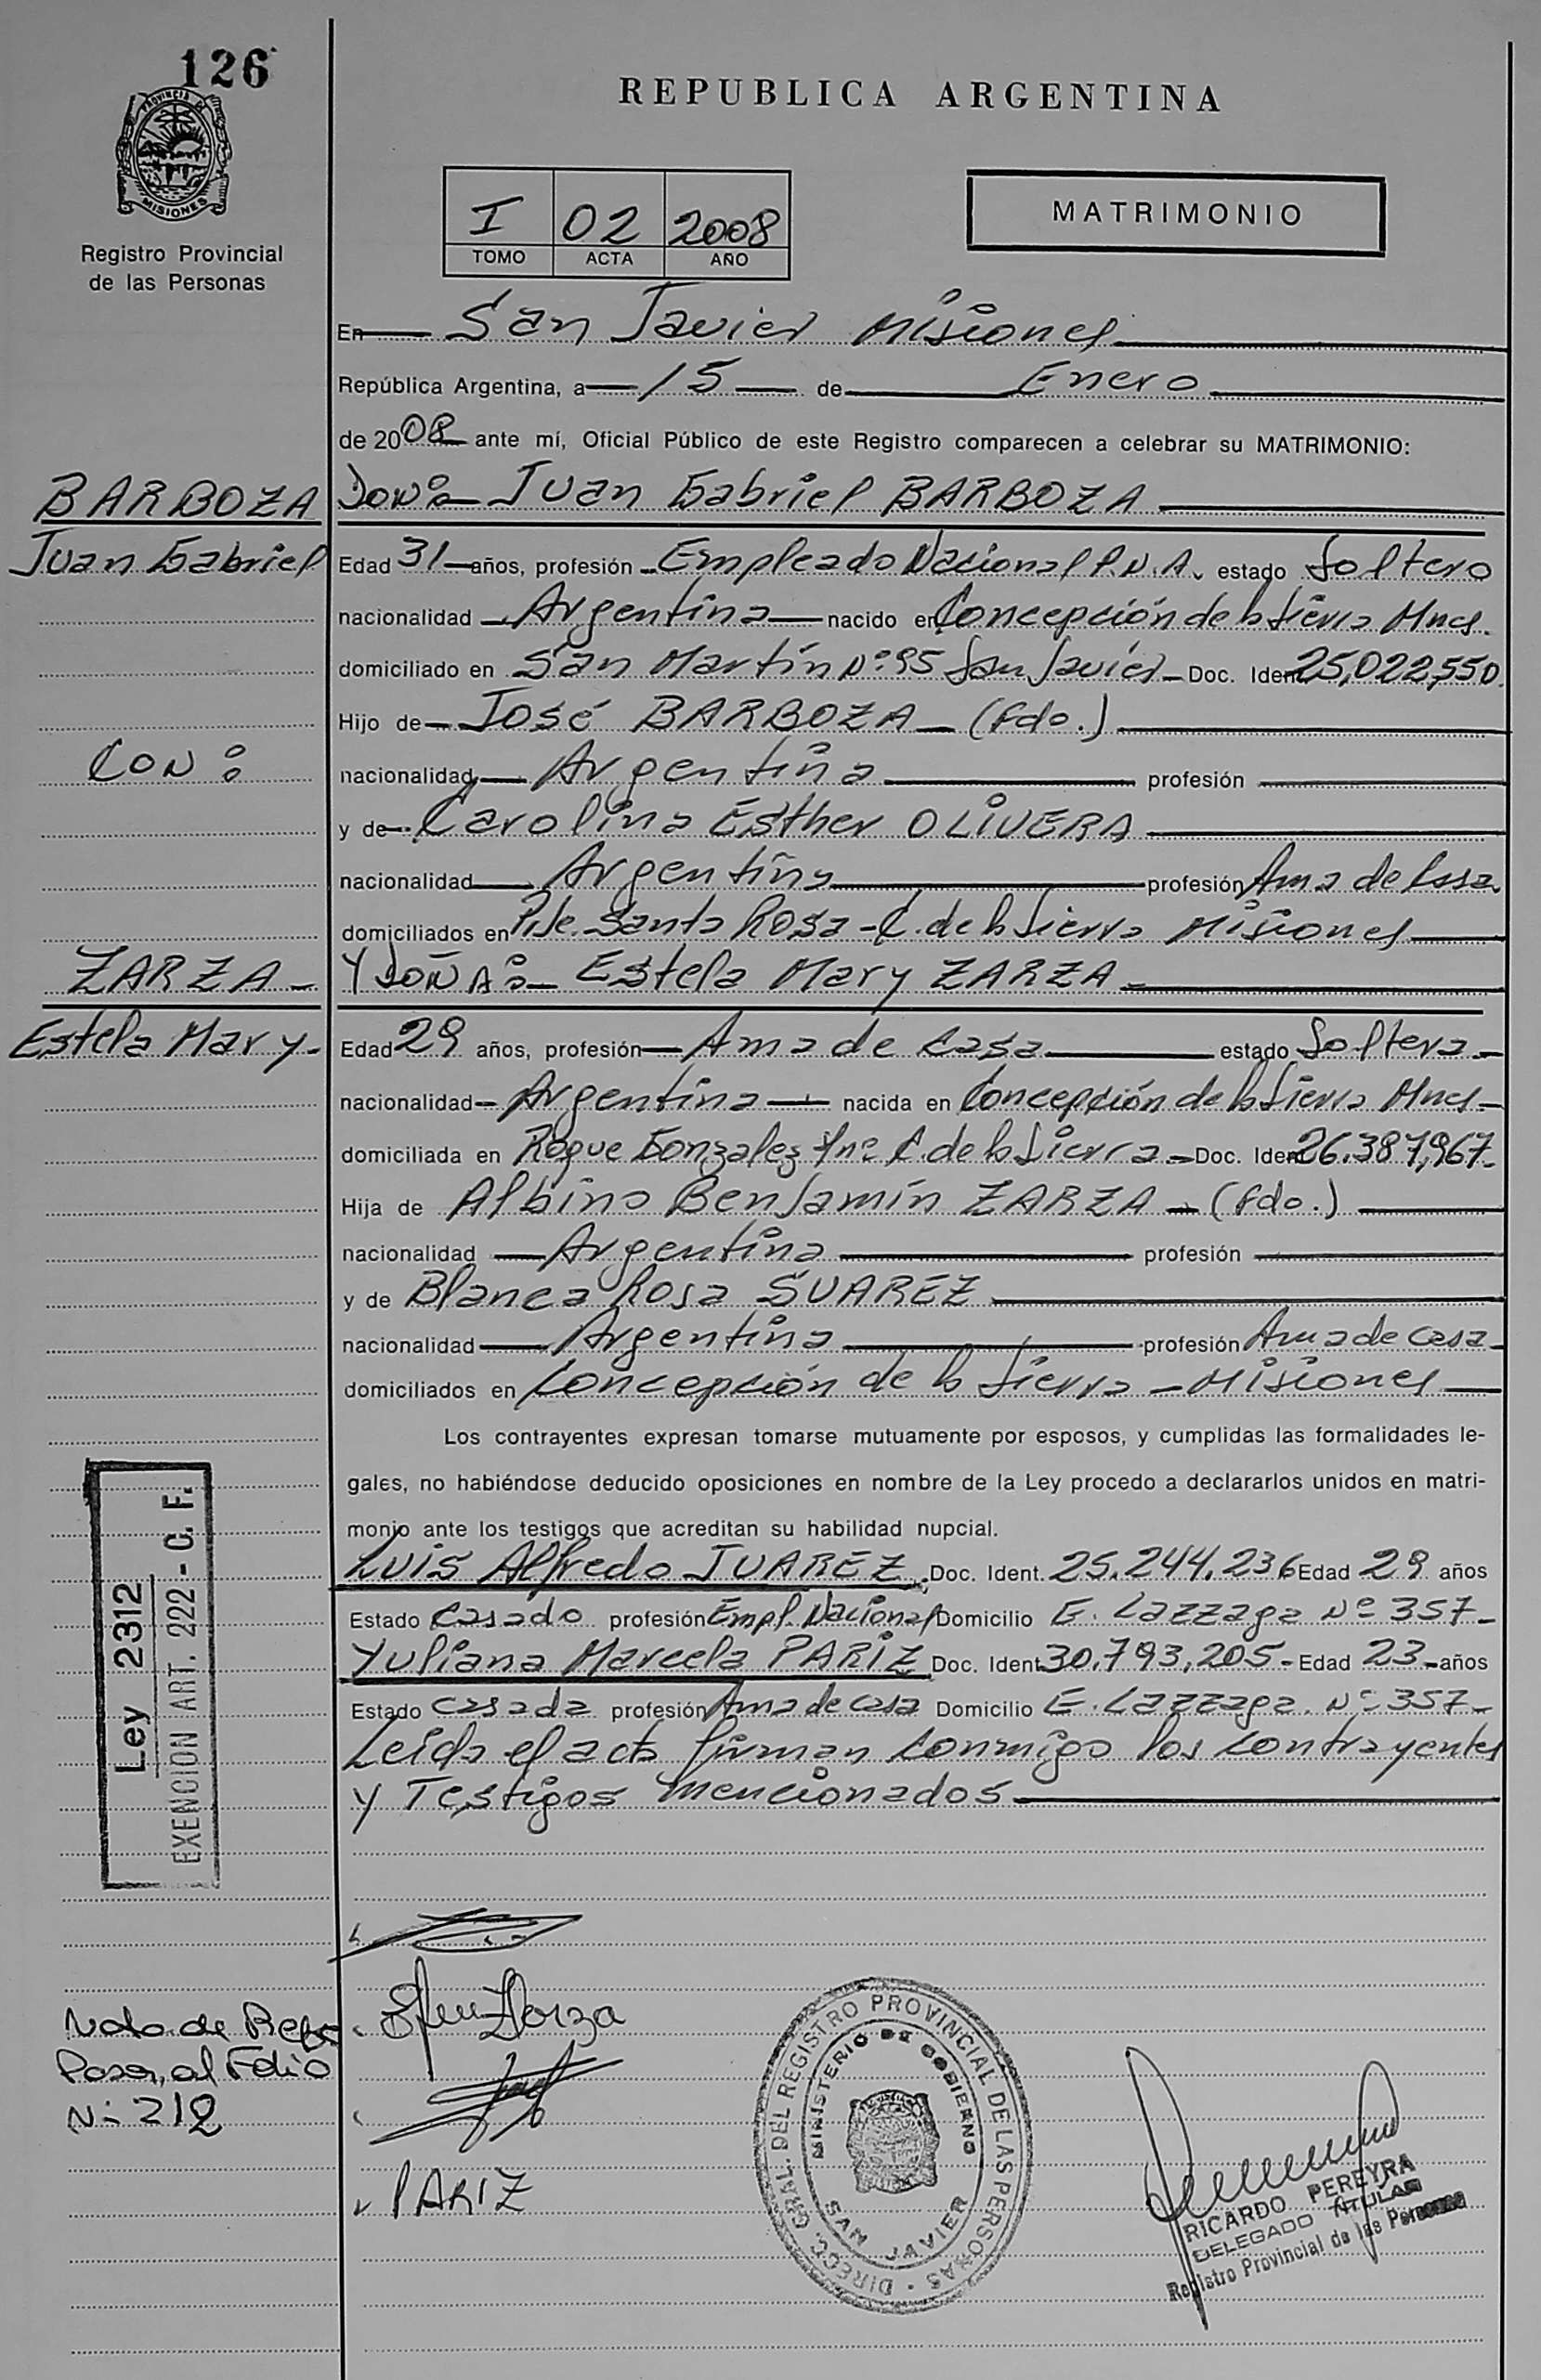 126
PROVINCIA DE
MISIONES
Registro Provincial
de las Personas
REPUBLICA ARGENTINA
I 02 2008
TOMO ACTA AÑO
MATRIMONIO
En San Javier Misiones
República Argentina, a 15 de Enero
de 2008 ante mí, Oficial Público de este Registro comparecen a celebrar su MATRIMONIO:
BARBOZA
DON: Juan Gabriel BARBOZA
Juan Gabriel
Edad 31 años, profesión Empleado Nacional P.N.A. estado Soltero
nacionalidad Argentina nacido en Concepción de la Sierra Mnes.
domiciliado en San Martín Nº 95 San Javier Doc. Iden 25,022,550.
Hijo de José BARBOZA (fdo.)
CON:
nacionalidad Argentina profesión
y de Carolina Esther OLIVERA
nacionalidad Argentina profesión Ama de Casa
domiciliados en Pje. Santa Rosa - C. de la Sierra Misiones
ZARZA
Y DOÑA: Estela Mary ZARZA
Estela Mary
Edad 29 años, profesión Ama de Casa estado Soltera
nacionalidad Argentina nacida en Concepción de la Sierra Mnes
domiciliada en Roque Gonzalez C. de la Sierra Doc. Iden 26.387,967
Hija de Albino Benjamín ZARZA (fdo.)
nacionalidad Argentina profesión
y de Blanca Rosa SUAREZ
nacionalidad Argentina profesión Ama de Casa
domiciliados en Concepción de la Sierra - Misiones
Los contrayentes expresan tomarse mutuamente por esposos, y cumplidas las formalidades le-
gales, no habiéndose deducido oposiciones en nombre de la Ley procedo a declararlos unidos en matri-
monio ante los testigos que acreditan su habilidad nupcial.
Luis Alfredo JUAREZ Doc. Ident. 25.244.236 Edad 29 años
Estado Casado profesión Empl. Nacional Domicilio E. Lazzaga Nº 357
Yuliana Marcela PARIZ Doc. Ident 30.793,205 Edad 23 años
Estado Casada profesión Ama de casa Domicilio E. Lazzaga Nº 357
Leída el acta firman conmigo los contrayentes
y Testigos mencionados
Ley 2312
EXENCION ART. 222 - C. F.
Zarza
PARIZ
Nota de Ref.
Pasa al Folio
Nº 212
DIRECC. GRAL. DEL REGISTRO PROVINCIAL DE LAS PERSONAS
MINISTERIO DE GOBIERNO
SAN JAVIER
RICARDO PEREYRA
DELEGADO TITULAR
Registro Provincial de las Personas